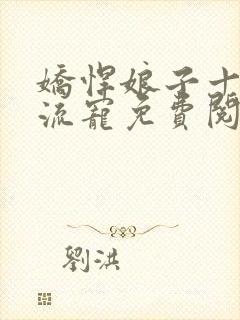 嬌悍娘子十
流寵免費閱
劉洪